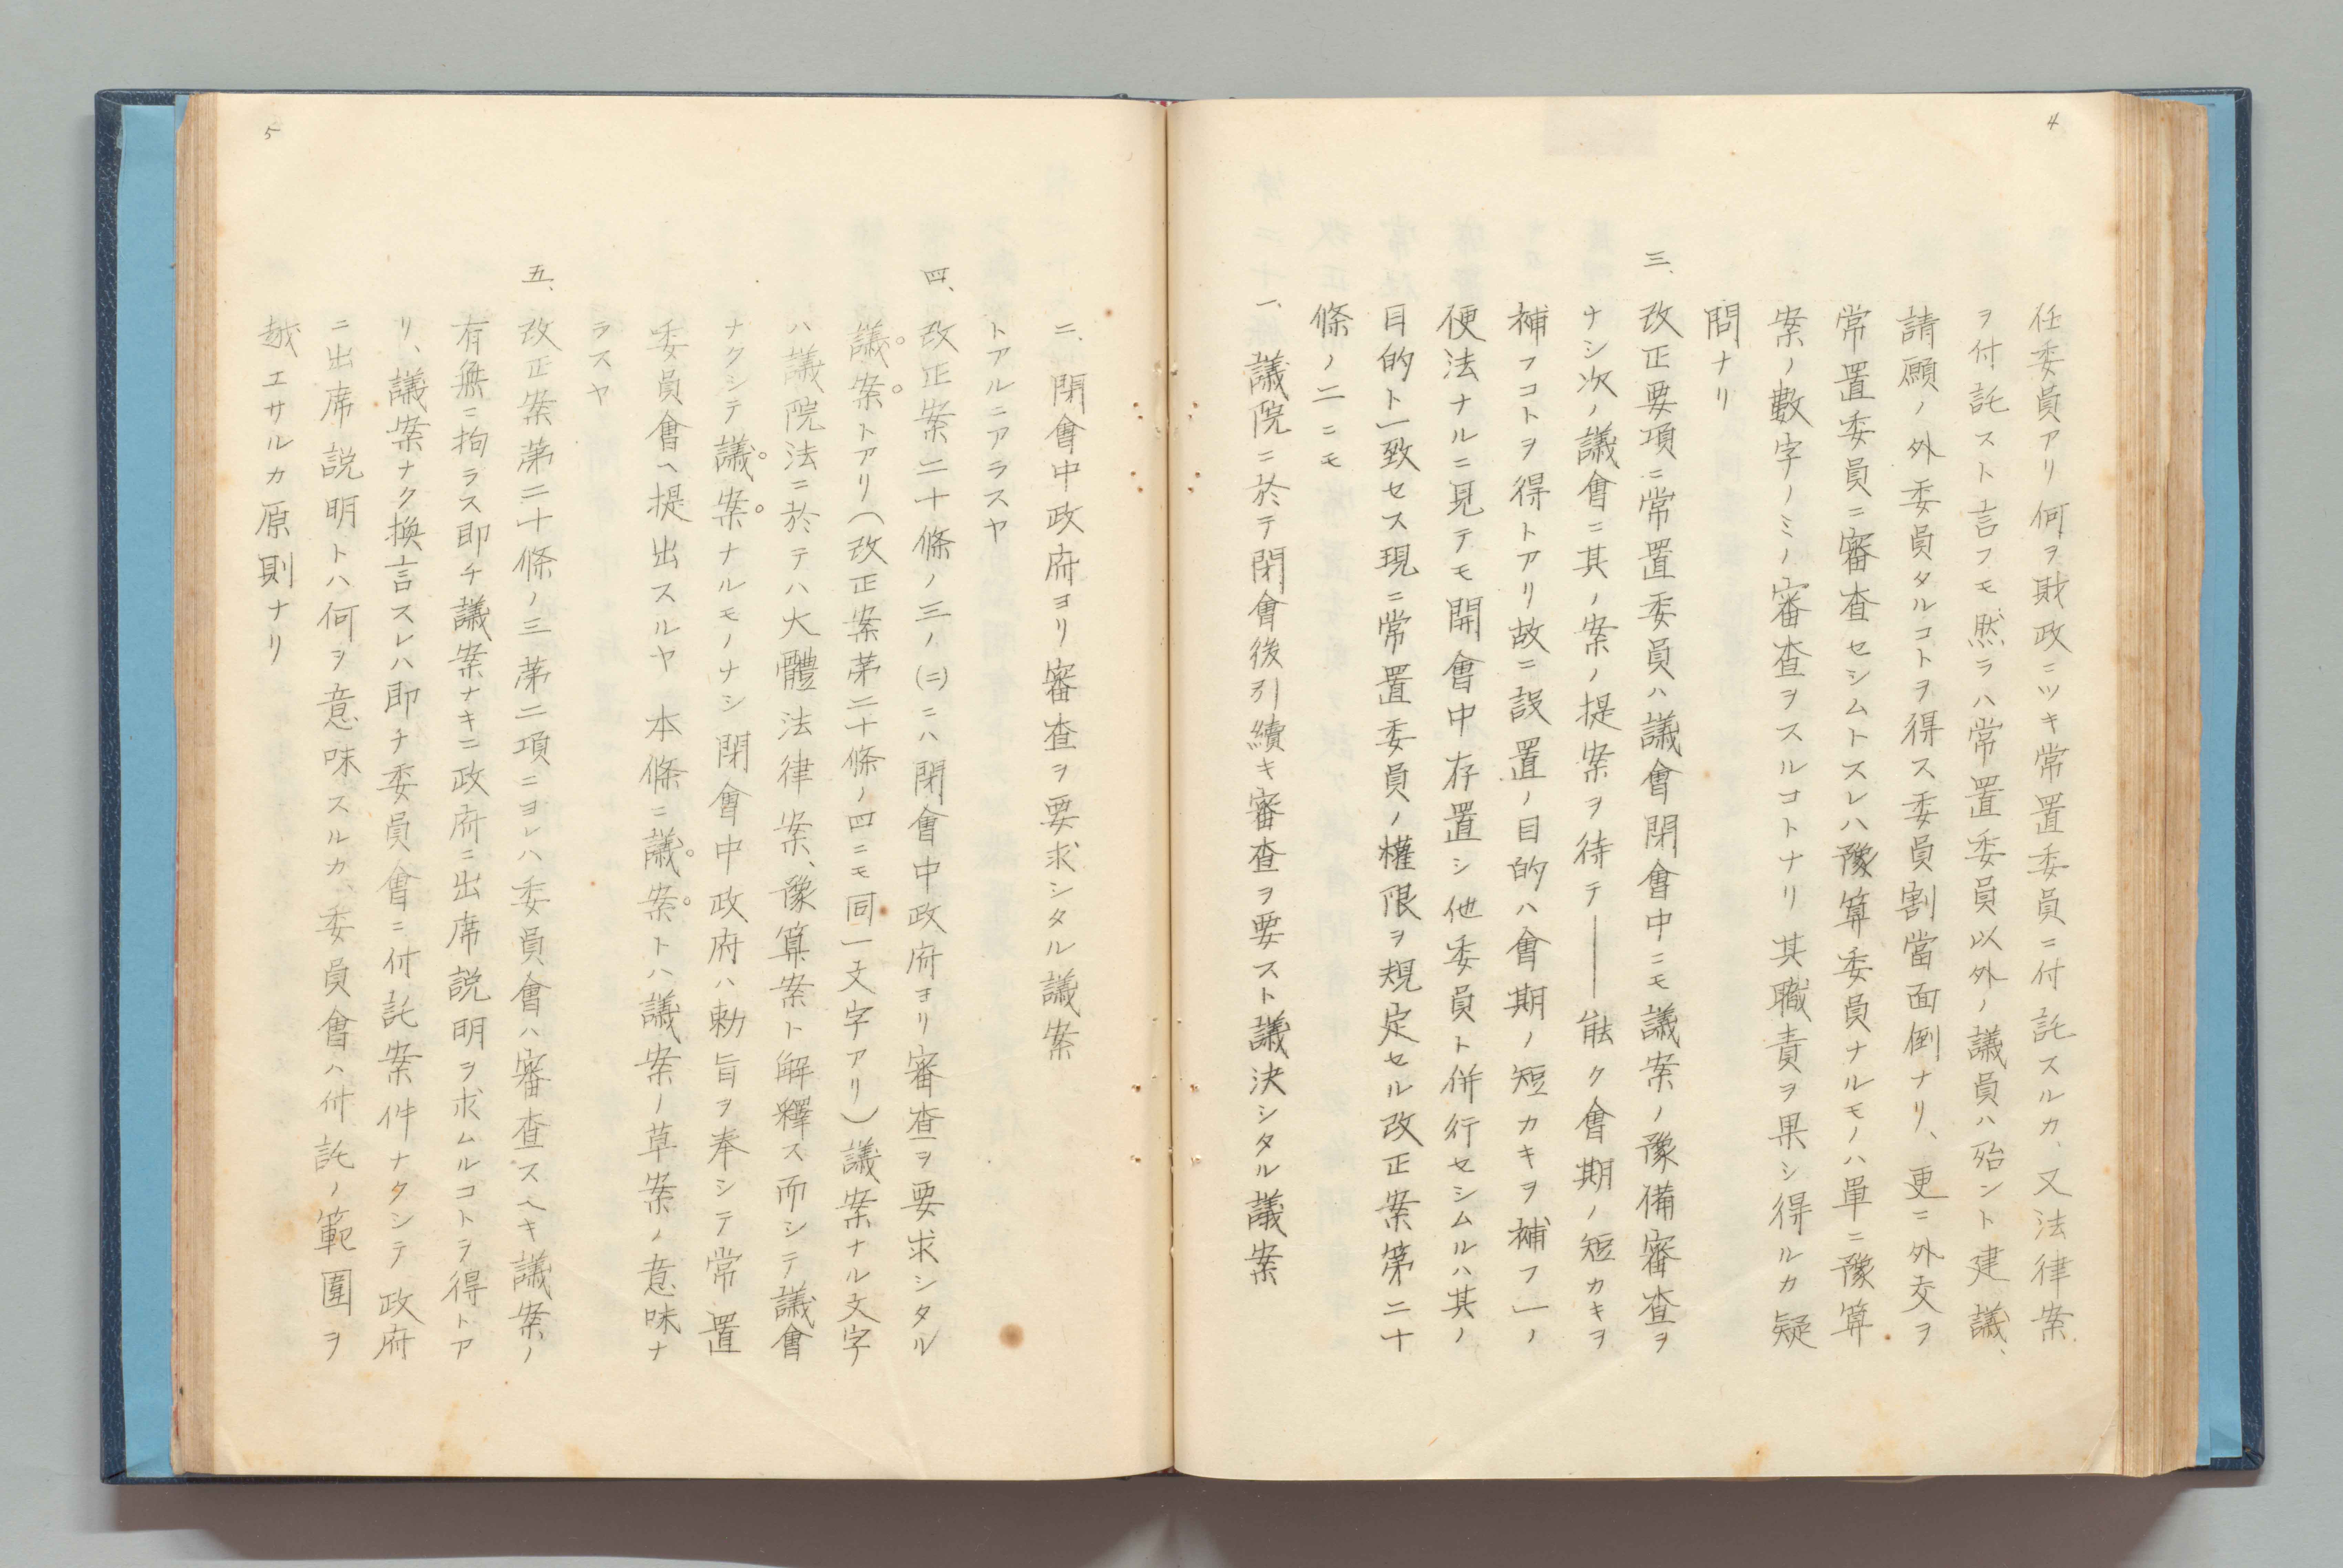 4
任委員アリ何ヲ財政ニツキ常置委員ニ付託スルカ、又法律案
ヲ付託スト言フモ、然ラハ常置委員以外ノ議員ハ殆ント建議、
請願ノ外委員タルコトヲ得ス委員割當面倒ナリ、更ニ外交ヲ
常置委員ニ審査セシムトスレハ豫算委員ナルモノハ單ニ豫算
案ノ數字ノミノ審査ヲスルコトナリ其職責ヲ果シ得ルカ疑
問ナリ
三、改正要項ニ常置委員ハ議會閉會中ニモ議案ノ豫備審査ヲ
ナシ次ノ議會ニ其ノ案ノ提案ヲ待テ――能ク會期ノ短カキヲ
補フコトヲ得トアリ故ニ設置ノ目的ハ會期ノ短カキヲ補フ一ノ
便法ナルニ見テモ開會中存置シ他委員ト併行セシムルハ其ノ
目的ト一致セス現ニ常置委員ノ權限ヲ規定セル改正案第二十
條ノ二ニモ
一、議院ニ於テ閉會後引續キ審査ヲ要スト議決シタル議案
二、閉會中政府ヨリ審査ヲ要求シタル議案
トアルニアラスヤ
四、改正案二十條ノ三ノ(二)ニハ閉會中政府ヨリ審査ヲ要求シタル
議案トアリ(改正案第二十條ノ四ニモ同一文字アリ)議案ナル文字
ハ議院法ニ於テハ大體法律案、豫算案ト解釋ス而シテ議會
ナクシテ議案ナルモノナシ閉會中政府ハ勅旨ヲ奉シテ常置
委員會ヘ提出スルヤ本條ニ議案トハ議案ノ草案ノ意味ナ
ラスヤ
五、改正案第二十條ノ三第二項ニヨレハ委員會ハ審査スヘキ議案ノ
有無ニ拘ラス即チ議案ナキニ政府ニ出席説明ヲ求ムルコトヲ得トア
リ、議案ナク換言スレハ即チ委員會ニ付託案件ナクシテ政府
ニ出席説明トハ何ヲ意味スルカ、委員會ハ付託ノ範圍ヲ
越エサルカ原則ナリ
5